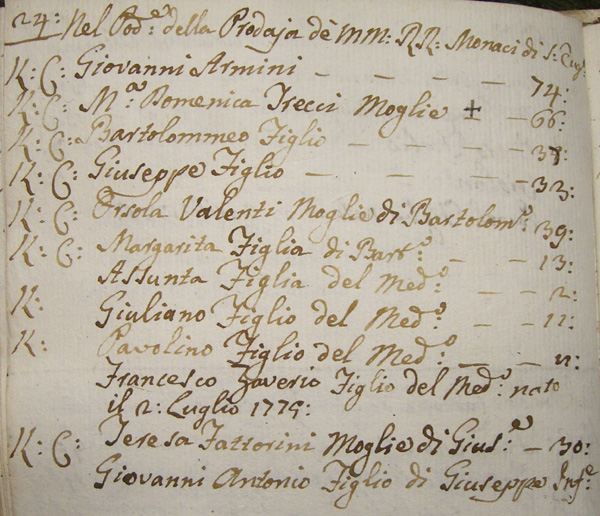 24: Nel Pod.e della Prodaja de MM: RR: Monaci di S: Eug:
K: C: Giovanni Armini — — — — — 74:
K: C: M.a Domenica Trecci Moglie + — 66:
K: C: Bartolommeo Figlio — — — — 38:
K: C: Giuseppe Figlio — — — — 33:
K: C: Orsola Valenti Moglie di Bartolom.o 39:
K: C: Margarita Figlia di Bart.o — — 13:
Assunta Figlia del Med.o — — 2:
K: Giuliano Figlio del Med.o — — 11:
K: Pavolino Figlio del Med.o — —
Francesco Zaverio Figlio del Med.o nato
il 2: Luglio 1775:
K: C: Teresa Fattorini Moglie di Gius.e — 30:
Giovanni Antonio Figlio di Giuseppe Inf.e